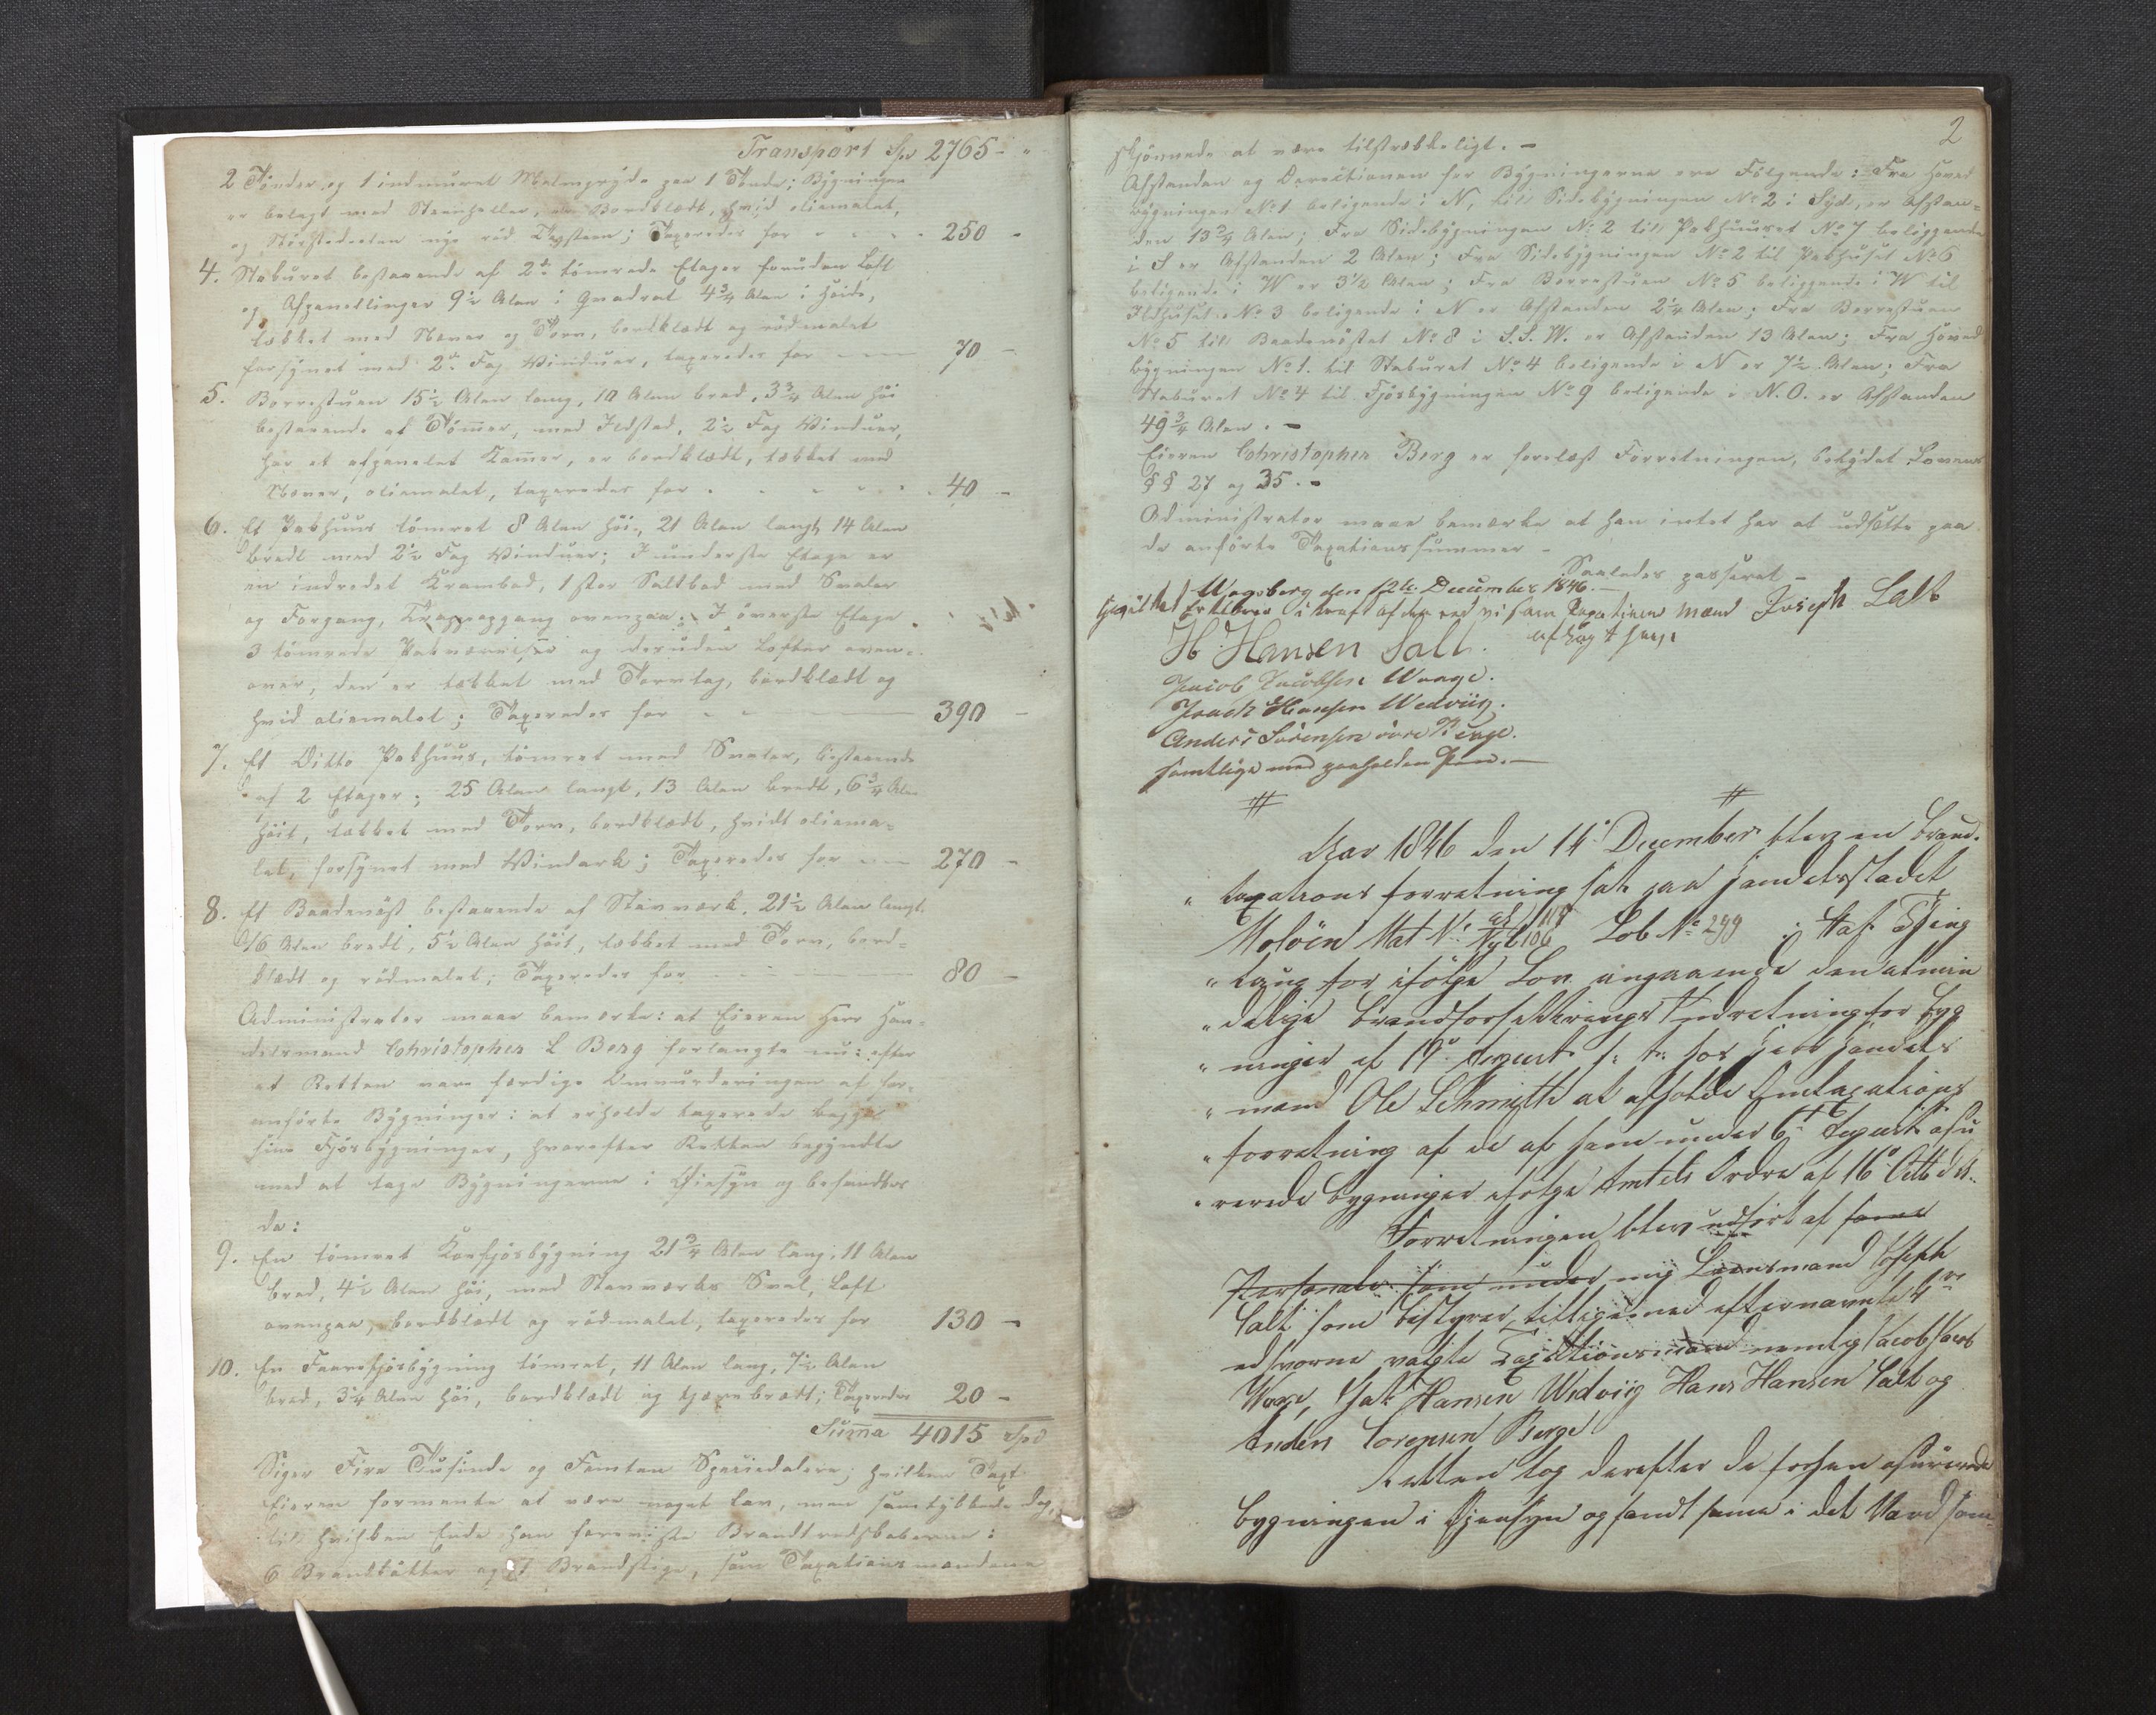 Transport Spd 2765 - "
2 Tønder og 1 indmuret Malmgryde paa 1 Tønde; Bygningen
er belagt med Steenheller, Bordklædt, hvid oliemalet,
og Skorsteenen nye rød Tagsteen; Taxeredes for - - - 250 -
4. Staburet bestaaende af 2de tömrede Etager foruden Loft
og Afpanellinger 9½ Alen i Qvadrat 4¾ Alen i Høide,
tækket med Næver og Torv, bordklædt og rödmalet
forsynet med 2de Fag Vinduer, taxeredes for - - 70 -
5. Borrestuen 15½ Alen lang, 10 Alen bred, 3¾ Alen høi
bestaaende af Tömmer, med Ildsted, 2½ Fag Vinduer,
har et afpanelet Kammer, er bordklædt, tækket med
Næver, oliemalet, taxeredes for - - - - 40 -
6. Et Pakhuus tömret 8 Alen høi, 21 Alen langt, 14 Alen
bredt med 2½ Fag Vinduer; I underste Etage er
en indredet Krambod, 1 stor Saltbod med Svaler
og Forgang, Trappegang ovenpaa; I øverste Etage
3 tömrede Pakværelser og desuden Lofter oven-
over, den er tækket med Torvtag, bordklædt og
hvid oliemalet; Taxeredes for - - 390 -
7. Et Ditto Pakhuus, tömret med Svaler, bestaaende
af 2 Etager; 25 Alen langt, 13 Alen bredt, 6¾ Alen
høit, tækket med Torv, bordklædt, hvidt oliema-
let, forsynet med Vindark; Taxeredes for - 270 -
8. Et Baadenøst bestaaende af Stavværk, 21½ Alen langt,
16 Alen bredt, 5½ Alen høit, tækket med Torv, bord-
klædt og rödmalet; Taxeredes for - 80 -
Administrator maae bemærke: at Eieren Herr Han-
delsmand Christopher L Berg forlangte nu: efter
at Retten var færdige Omvurderingen af for-
anførte Bygninger: at erholde taxerede begge
sine Fjösbygninger, hvorefter Retten begyndte
med at tage Bygningerne i Øiesyn og befandtes
da:
9. En tömret Koefjösbygning 21¾ Alen lang, 11 Alen
bred, 4½ Alen høi, med Stavværks Sval, Loft
ovenpaa, bordklædt og rödmalet, taxeredes for 130 -
10. En Faarefjösbygning tömret, 11 Alen lang, 7½ Alen
bred, 3¼ Alen høi, bordklædt og tjærebrædt; Taxeredes 20 -
Summa 4015 Spd
Siger Fire Tusinde og Femten Speciedalere; hvilken Taxt
Eieren formente at være noget lav, men samtykkede dog,
til hvilken Ende han foreviste Brandredskaberne:
6 Brandbøtter og 1 Brandstige, som Taxationsmændene
2
skjönnede at være tilstrækkeligt. -
Afstanden og Directionen for Bygningerne ere Følgende: Fra Hoved
bygningen No 1 beligende i N, til Sidebygningen No 2 i Syd, er Afstan-
den 13¾ Alen; Fra Sidebygningen No 2 til Pakhuuset No 7 beliggende
i S er Afstanden 2 Alen; Fra Sidebygningen No 2 til Pakhuset No 6
beligende i W er 3½ Alen; Fra Borrestuen No 5 beliggende i W til
Ildhuset No 3 beligende i N er Afstanden 2¼ Alen; Fra Borrestuen
No 5 til Baadenøstet No 8 i S.S.W. er Afstanden 13 Alen; Fra Hoved
bygningen No 1. til Staburet No 4 beligende i N er 7½ Alen; Fra
Staburet No 4 til Fjösbygningen No 9 beligende i N.O. er Afstanden
49¾ Alen. -
Eieren Christopher Berg er forelæst Forretningen, betydet Lovens
§§ 27 og 35. -
Administrator maae bemærke at han intet har at udsætte paa
de anførte Taxationssummer -
Saaledes passeret -
den 12te December 1846. -
i kraft af den eed vi som Taxations Mænd Joseph Salt
aflagt have
H. Hansen Salt.
Jacob Jacobsen Waage.
Isach Hansen Wedviig.
Anders Sörensen övre Berge.
samtlige med paaholden Pen. -
# #
Aar 1846 den 14de December blev en Brand-
taxations forretning sat paa Handelsstedet
Moloen Mat No Lob No 299 i Haf. Thing
laug for ifølge Lov angaaende den almin
delige Brandforsikkrings Indretning for Byg
ninger af 19de August f: A: hos Herr Handels
mand Ole Schmidt at afholde Omtaxations
forretning af de af ham under 6te August assu
rerede bygninger ifølge Amtets Ordre af 16de Octb d A:
Forretningen blev udført af samme
Personale som under mig Lænsmand Joseph
Salt som bestyrer, tilligemed efternævnte 4re
edsvorne valgte Taxationsmænd nemlig Jacob Jacobs
Waage, Isak Hansen Widviig Hans Hansen Salt og
Anders Sorensen Berge.
Retten tog derefter de forhen assurerede
bygninger i Øjensyn og fandt same i det Værd som